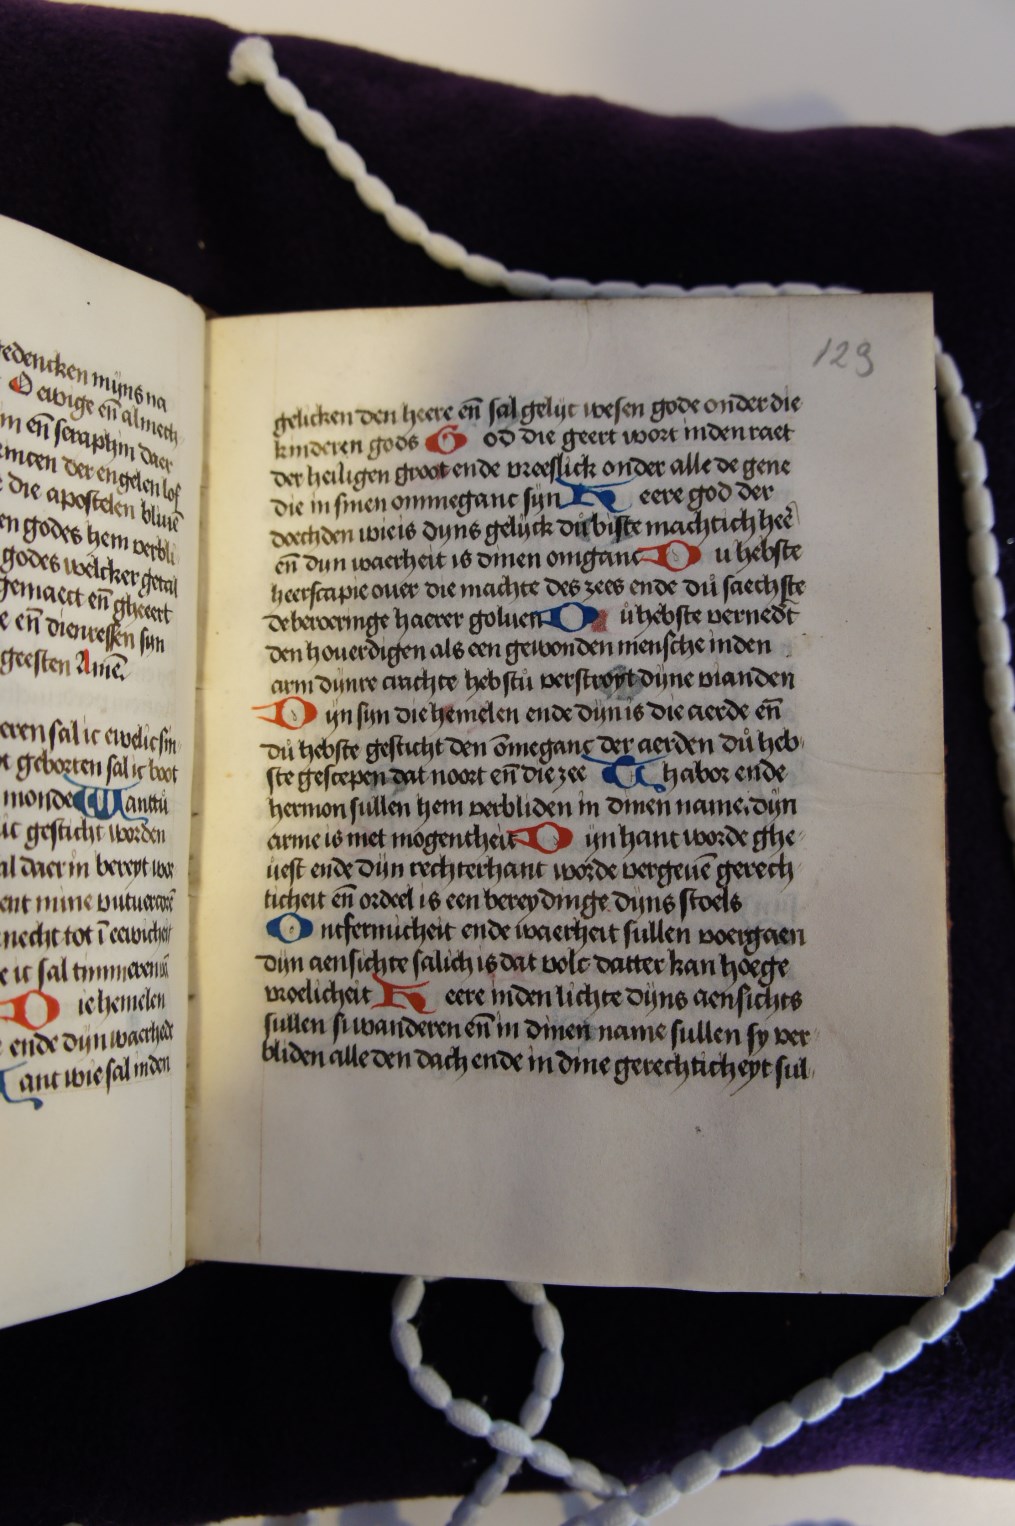 edencken mijns na
O ewige en̄ almech
m en̄ seraphin daer
der engelen lof
die apostelen bliuē
en godes hem verbli
godes welcker getal
gemaect en̄ gheeert
e en̄ dienressen syn
geesten Amē
eren sal ic ewelic sin
geborten sal ic boot
monde Want tů
ic gesticht worden
al daer in bereyt wer
ent mine
necht tot ī eewicheit
ic sal
Die hemelen
ende dyn waerhede
ant wie sal in den
129
gelicken den heere en̄ sal gelijc wesen gode onder die
kinderen gods God die geert wort in den raet
der heiligen groot ende vreeslick onder alle de gene
die in sinen ommeganc syn Heere god der
doechden wie is dyns gelijck dů biste machtich heē
en̄ dyn waerheit is in dinen omganc Du hebste
heerscapie ouer die machte des zees ende dů saechste
de beroeringe haerer goluen Dů hebste vernedt̄
den houerdigen als een gewonden mensche in den
arm dynre crachte hebstu verstroyt dyne vianden
Dijn syn die hemelen ende dyn is die aerde en̄
dů hebste gesticht den ōmeganc der aerden dů heb
ste gescepen dat noort en̄ die zee Thabor ende
hermon sullen hem verbliden in dinen name. dyn
arme is met mogentheit Dijn hant worde ghe
uest ende dijn rechterhant worde vergeuē gerech
ticheit en̄ ordeel is een bereydinge dyns stoels
Ontfermicheit ende waerheit sullen voergaen
dyn aensichte salich is dat volc datter kan hoege
vroelicheit Heere in den lichte dyns aensichts
sullen si wanderen en̄ in dinen name sullen sy ver
bliden alle den dach ende in dine gerechticheyt sul